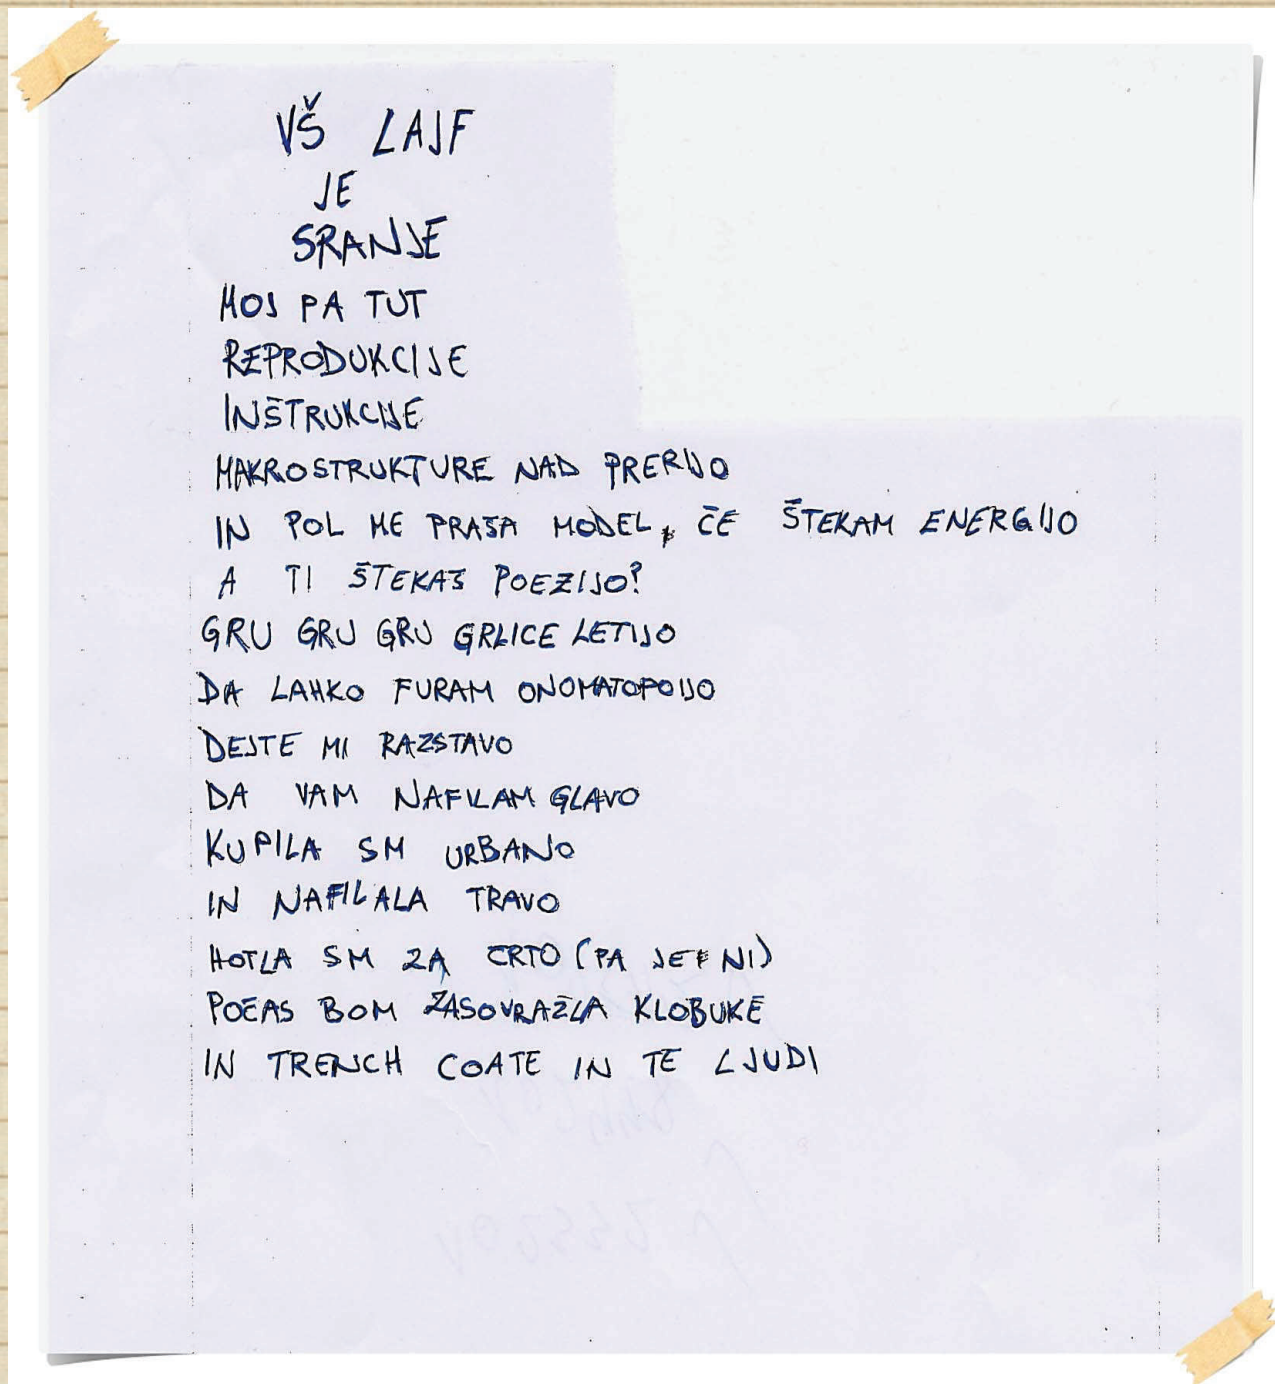 VŠ LAJF
JE
SRANJE
MOJ PA TUT
REPRODUKCIJE
INŠTRUKCIJE
MAKROSTRUKTURE NAD PRERIJO
IN POL ME PRAŠA MODEL, ČE ŠTEKAM ENERGIJO
A TI ŠTEKAŠ POEZIJO?
GRU GRU GRU GRLICE LETIJO
DA LAHKO FURAM ONOMATOPOIJO
DEJTE MI RAZSTAVO
DA VAM NAFILAM GLAVO
KUPILA SM URBANO
IN NAFILALA TRAVO
HOTLA SM ZA ČRTO (PA JE NI)
POČAS BOM ZASOVRAŽLA KLOBUKE
IN TRENCH COATE IN TE LJUDI